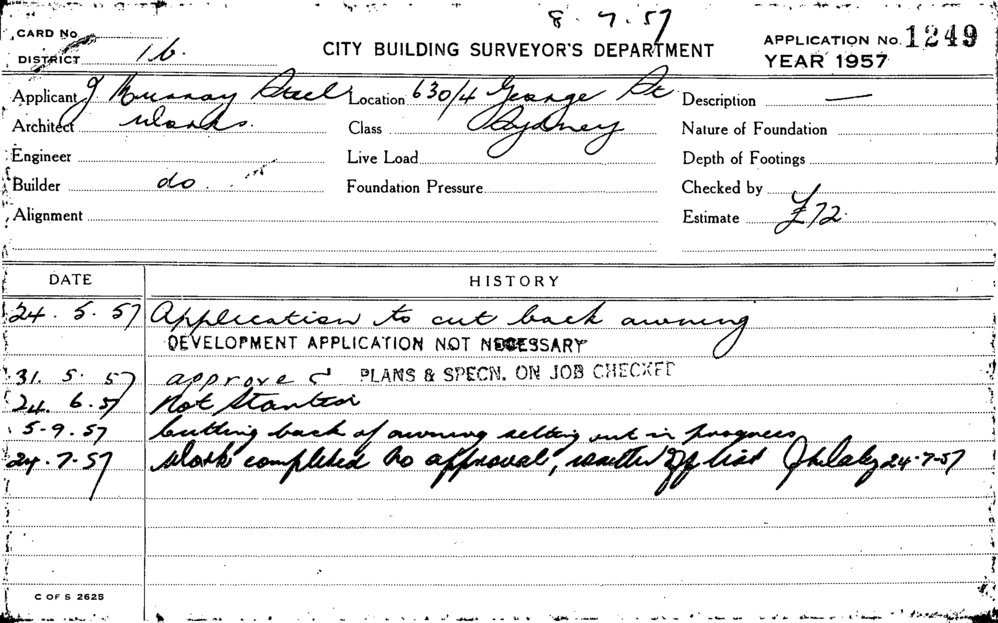 8.7.57
CARD No.
DISTRICT 16.
CITY BUILDING SURVEYOR'S DEPARTMENT
APPLICATION No. 1249
YEAR 1957
Applicant J Murray Steel Location 630/4 George St Description —
Architect Works. Class Sydney Nature of Foundation
Engineer Live Load Depth of Footings
Builder do Foundation Pressure Checked by
Alignment Estimate £72.
DATE HISTORY
24.5.57 Application to cut back awning
DEVELOPMENT APPLICATION NOT NECESSARY
31.5.57 approved PLANS & SPECN. ON JOB CHECKED
24.6.57 Not Started
5-9.57 Cutting back of awning setting out in progress
24.7.57 Work completed to approval, off list 24-7-57
C OF S 2625